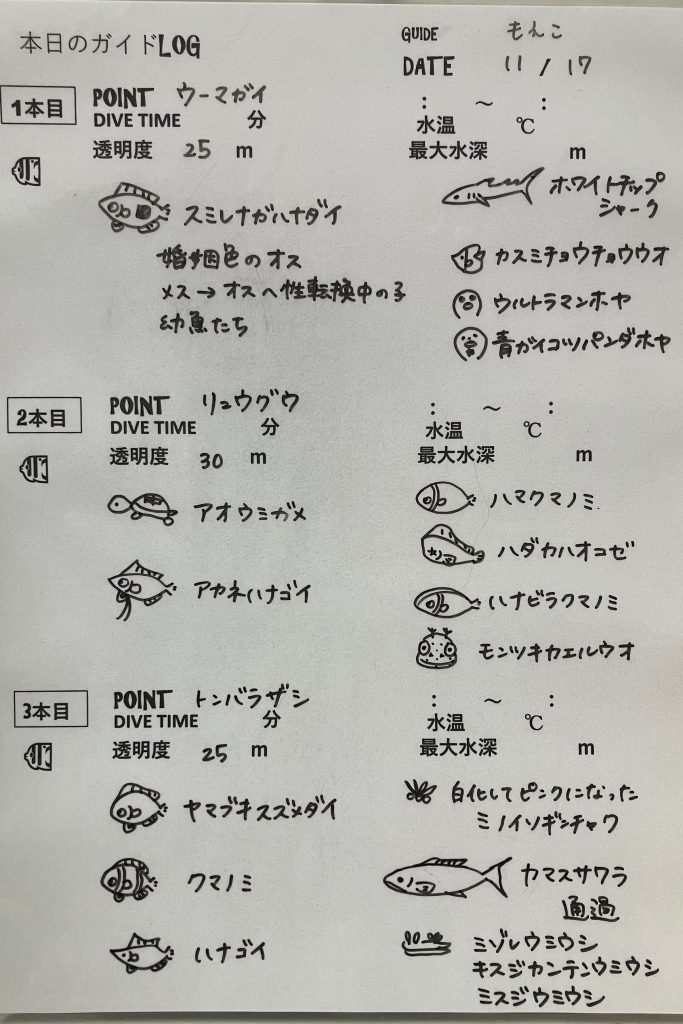 本日のガイドLOG
GUIDE もんこ
DATE 11 / 17
1本目
POINT ウーマガイ
DIVE TIME 分
透明度 25 m
: ～ :
水温 ℃
最大水深 m
スミレナガハナダイ
婚姻色のオス
メス→オスへ性転換中の子
幼魚たち
ホワイトチップ
シャーク
カスミチョウチョウウオ
ウルトラマンホヤ
青ガイコツパンダホヤ
2本目
POINT リュウグウ
DIVE TIME 分
透明度 30 m
: ～ :
水温 ℃
最大水深 m
アオウミガメ
アカネハナゴイ
ハマクマノミ
ハダカハオコゼ
ハナビラクマノミ
モンツキカエルウオ
3本目
POINT トンバラザシ
DIVE TIME 分
透明度 25 m
: ～ :
水温 ℃
最大水深 m
ヤマブキスズメダイ
クマノミ
ハナゴイ
白化してピンクになった
ミノイソギンチャク
カマスサワラ
通過
ミゾレウミウシ
キスジカンテンウミウシ
ミスジウミウシ